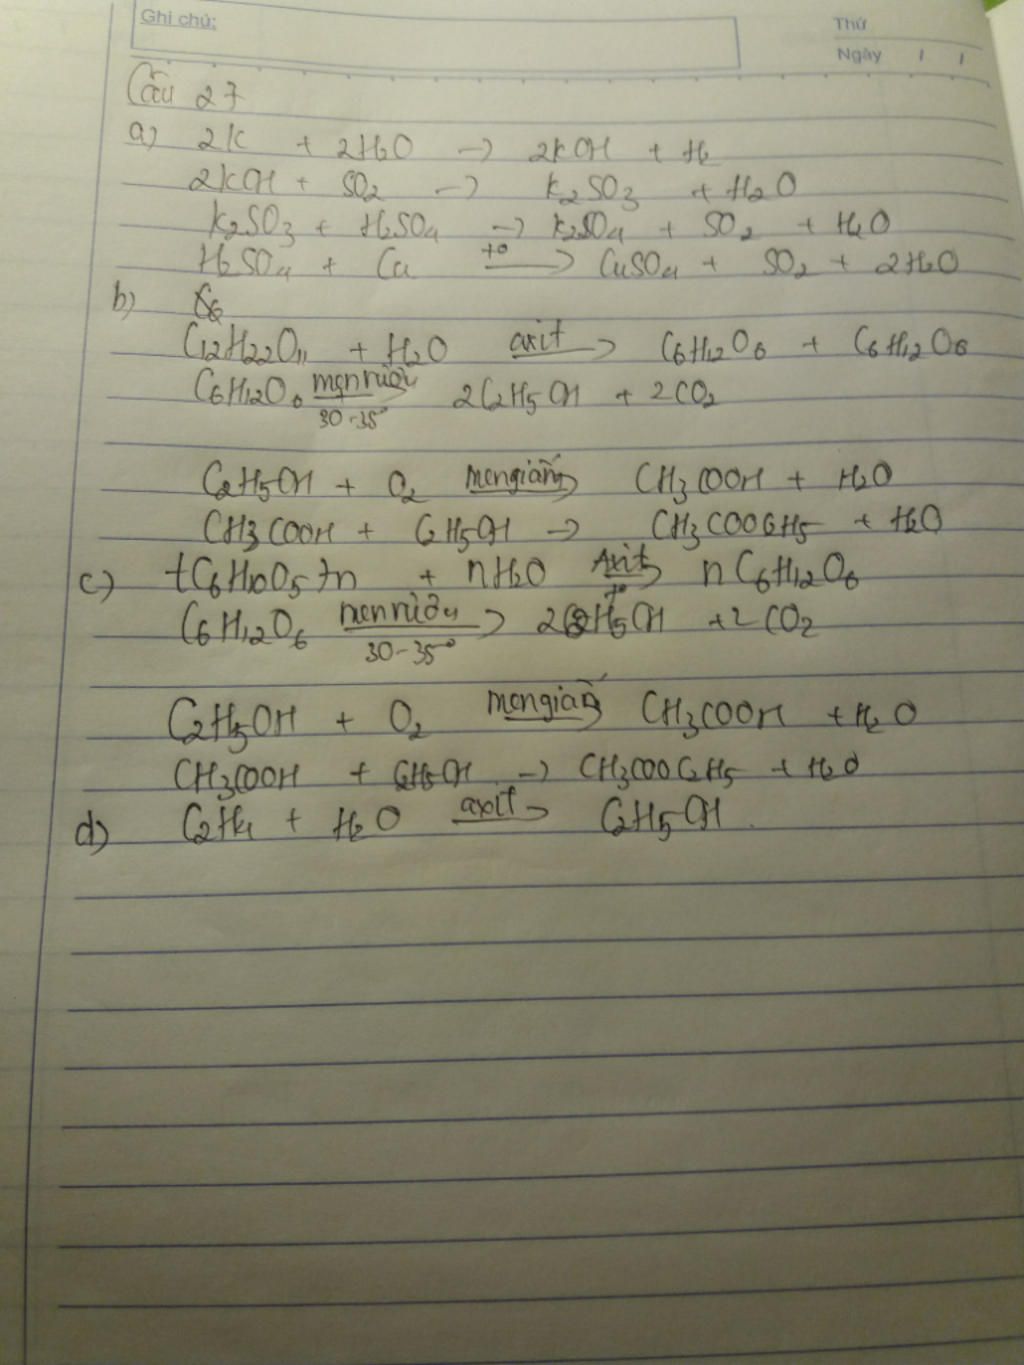 Ghi chú:
Thứ
Ngày / /
Câu 27
a) 2K + 2H2O → 2KOH + H2
2KOH + SO2 → K2SO3 + H2O
K2SO3 + H2SO4 → K2SO4 + SO2 + H2O
H2SO4 + Cu t° → CuSO4 + SO2 + 2H2O
b)
C12H22O11 + H2O axit → C6H12O6 + C6H12O6
C6H12O6 men rượu → 2C2H5OH + 2CO2
30-35°
C2H5OH + O2 men giấm → CH3COOH + H2O
CH3COOH + C2H5OH → CH3COOC2H5 + H2O
c) (C6H10O5)n + nH2O Axit → nC6H12O6
t°
C6H12O6 men rượu → 2C2H5OH + 2CO2
30-35°
C2H5OH + O2 men giấm → CH3COOH + H2O
CH3COOH + C2H5OH → CH3COOC2H5 + H2O
d) C2H4 + H2O axit → C2H5OH